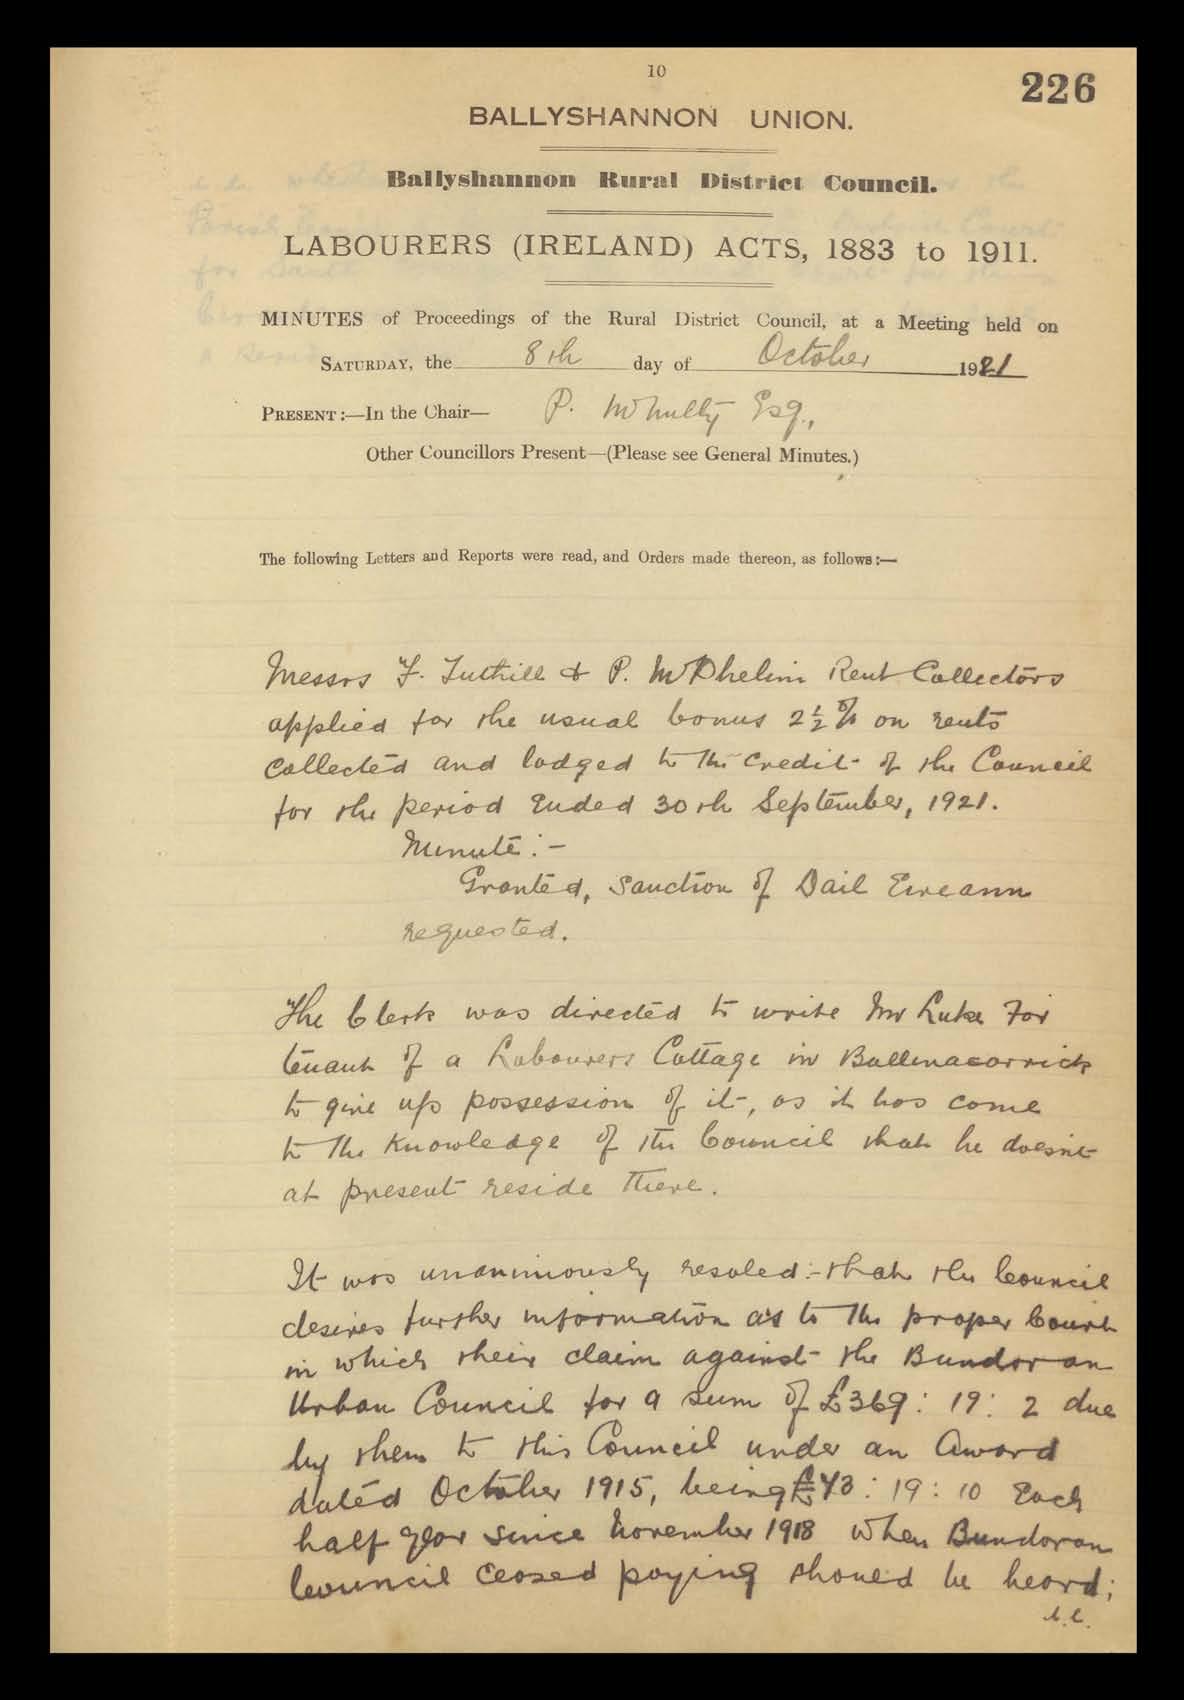 10
226
BALLYSHANNON UNION.
Ballyshannon Rural District Council.
LABOURERS (IRELAND) ACTS, 1883 to 1911.
MINUTES of Proceedings of the Rural District Council, at a Meeting held on
SATURDAY, the 8th day of October 1921
PRESENT:—In the Chair— P. McNulty Esq.,
Other Councillors Present—(Please see General Minutes.)
The following Letters and Reports were read, and Orders made thereon, as follows:—
Messrs F. Tuthill & P. McPhelim Rent Collectors
applied for the usual bonus 2½ % on rents
collected and lodged to the credit of the Council
for the period ended 30th September, 1921.
Minute:-
Granted, sanction of Dail Eireann
requested.
The Clerk was directed to write Mr Luke
tenant of a Labourers Cottage in Ballinacarrick
to give up possession of it, as it has come
to the knowledge of the Council that he doesn't
at present reside there.
It was unanimously resolved:-that the Council
desires further information as to the proper Court
in which their claim against the Bundoran
Urban Council for a sum of £369: 19: 2 due
by them to this Council under an Award
dated October 1915, being £43: 19: 10 Each
half year since November 1918 when Bundoran
Council ceased paying should be heard;